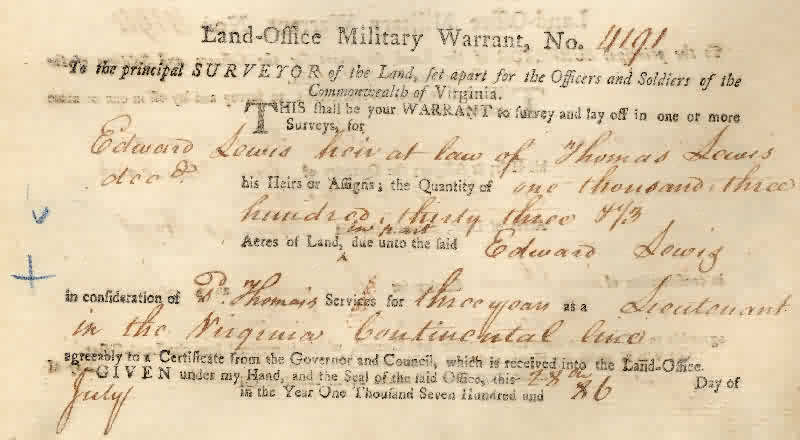 Land-Office Military Warrant, No. 4191
To the principal SURVEYOR of the Land, set apart for the Officers and Soldiers of the
Commonwealth of Virginia.
THIS shall be your WARRANT to survey and lay off in one or more
Surveys, for
Edward Lewis heir at law of Thomas Lewis
decd
his Heirs or Assigns; the Quantity of one thousand three
hundred thirty three &1/3
in part
Acres of Land, due unto the said Edward Lewis
in consideration of sd Thomas Services for three years as a Lieutenant
in the Virginia Continental line
agreeably to a Certificate from the Governor and Council, which is received into the Land-Office.
GIVEN under my Hand, and the Seal of the said Office, this 28th Day of
July in the Year One Thousand Seven Hundred and 86